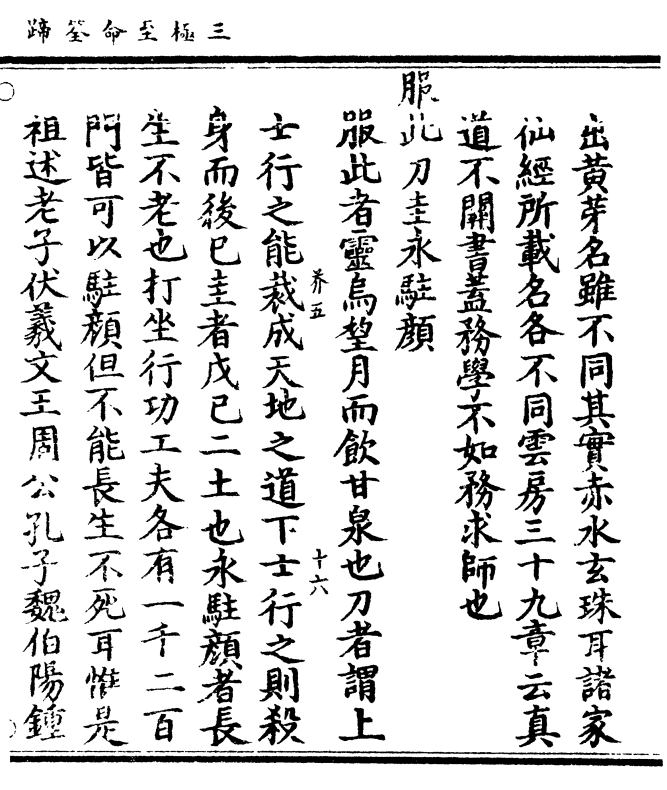 三極至命筌蹄
出黃芽名雖不同其實赤水玄珠耳諸家
仙經所載名各不同雲房三十九章云真
道不關書蓋務學不如務求師也
服此刀圭永駐顔
服此者靈烏望月而飲甘泉也刀者謂上
养五
十六
士行之能裁成天地之道下士行之則殺
身而後已圭者戊巳二土也永駐顔者長
生不老也打坐行功工夫各有一千二百
門皆可以駐顔但不能長生不死耳惟是
祖述老子伏羲文王周公孔子魏伯陽鍾